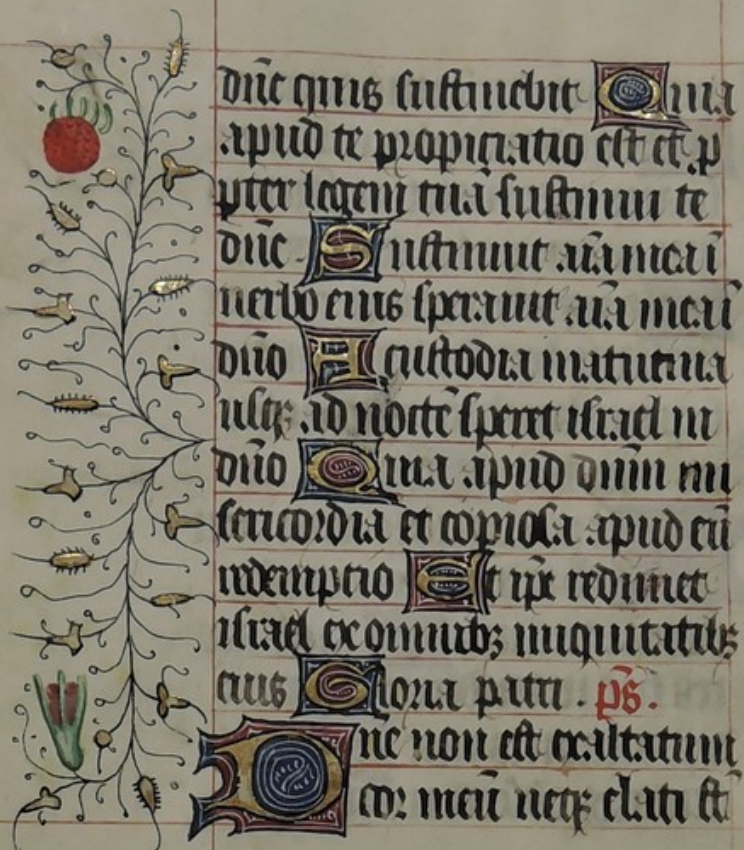 dn̄e quis sustinebit Quia
apud te propiciatio est et p̱
pter legem tuā sustinui te
dn̄e. Sustinuit aīa mea ī
uerbo eius sperauit aīa mea ī
dn̄o A custodia matutina
usqꝫ ad noctē speret israel in
dn̄o Quia apud dn̄um mi
sericordia et copiosa apud eū
redemptio Et ip̄e redimet
israel ex omnibꝫ iniquitatibꝫ
eius Gloria patri. p̄s.
Dne non est exaltatum
cor meū neqꝫ elati st̄